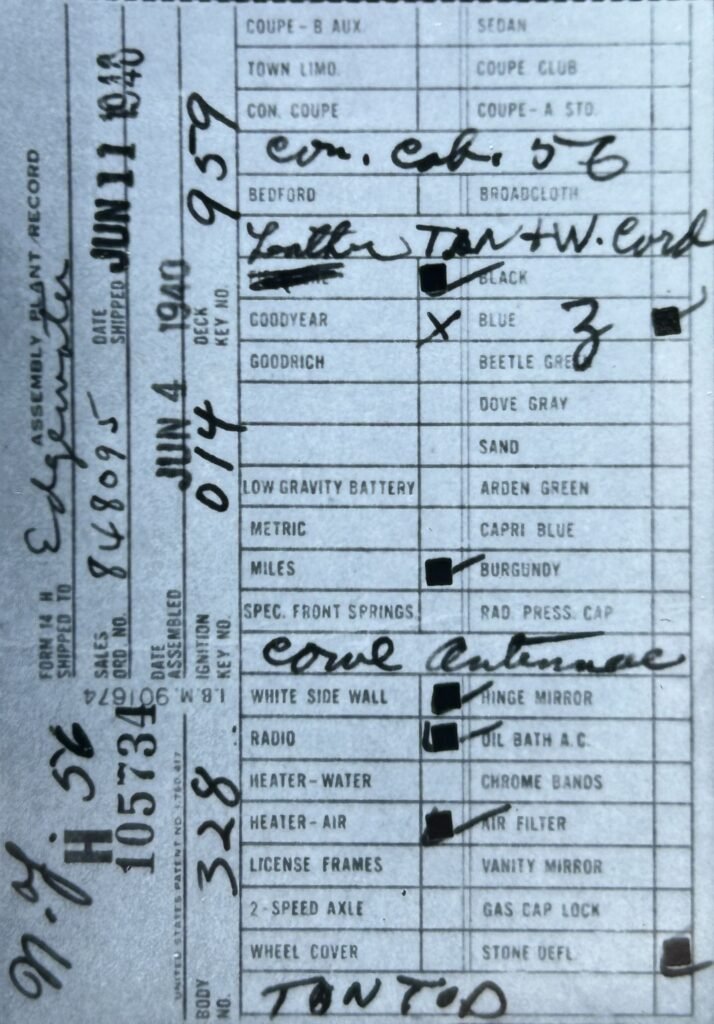 FORM 14 H ASSEMBLY PLANT RECORD
SHIPPED TO Edgewater
SALES ORD. NO. 848095 DATE SHIPPED JUN 11 1940
DATE ASSEMBLED JUN 4 1940
IGNITION KEY NO. 014 DECK KEY NO. 959
I.B.M. 901674
N.Y 56
H
105734
UNITED STATES PATENT NO. 1,780,417
BODY NO. 328
COUPE-B AUX. SEDAN
TOWN LIMO. COUPE CLUB
CON. COUPE COUPE-A STD.
Con. Cab. 56
BEDFORD BROADCLOTH
Leather TAN + W. Cord
BLACK
GOODYEAR X BLUE 3
GOODRICH BEETLE GREEN
DOVE GRAY
SAND
LOW GRAVITY BATTERY ARDEN GREEN
METRIC CAPRI BLUE
MILES BURGUNDY
SPEC. FRONT SPRINGS RAD. PRESS. CAP
Cowl Antennae
WHITE SIDE WALL HINGE MIRROR
RADIO OIL BATH A.C.
HEATER-WATER CHROME BANDS
HEATER-AIR AIR FILTER
LICENSE FRAMES VANITY MIRROR
2-SPEED AXLE GAS CAP LOCK
WHEEL COVER STONE DEFL.
TAN TOP